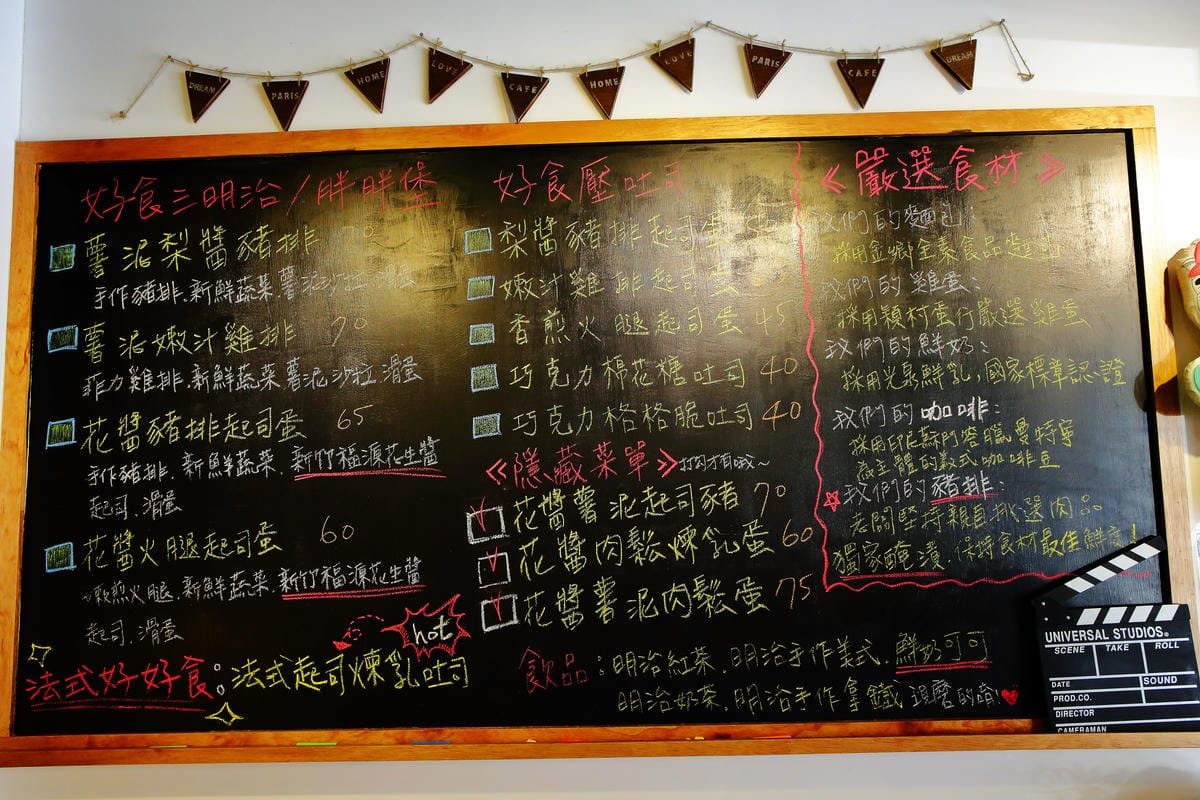 DREAM PARIS HOME LOVE CAFE HOME LOVE PARIS CAFE DREAM
好食三明治/胖胖堡
薯泥梨醬豬排 70
手作豬排.新鮮蔬菜.薯泥沙拉.滑蛋
薯泥嫩汁雞排 70
菲力雞排.新鮮蔬菜.薯泥沙拉.滑蛋
花醬豬排起司蛋 65
手作豬排.新鮮蔬菜.新竹福源花生醬
起司.滑蛋
花醬火腿起司蛋 60
煎火腿.新鮮蔬菜.新竹福源花生醬
起司.滑蛋
hot
法式好好食:法式起司煉乳吐司
好食壓吐司
梨醬豬排起司蛋
嫩汁雞排起司蛋
香煎火腿起司蛋 45
巧克力棉花糖吐司 40
巧克力格格脆吐司 40
《隱藏菜單》打勾才有哦~
花醬薯泥起司豬 70
花醬肉鬆煉乳蛋 60
花醬薯泥肉鬆蛋 75
飲品:明治紅茶.明治手作美式.鮮奶可可
明治奶茶.明治手作拿鐵 現磨的唷!
《嚴選食材》
我們的麵包:
採用金鄉全素食品
我們的雞蛋:
採用穎村蛋行嚴選雞蛋
我們的鮮奶:
採用光泉鮮乳,國家標準認證
我們的咖啡:
採用印尼蘇門答臘曼特寧
為主體的義式咖啡豆
我們的豬排:
老闆堅持親自挑選肉品
獨家醃漬.保持食材最佳鮮度!
UNIVERSAL STUDIOS®
SCENE TAKE ROLL
DATE SOUND
PROD.CO.
DIRECTOR
CAMERAMAN